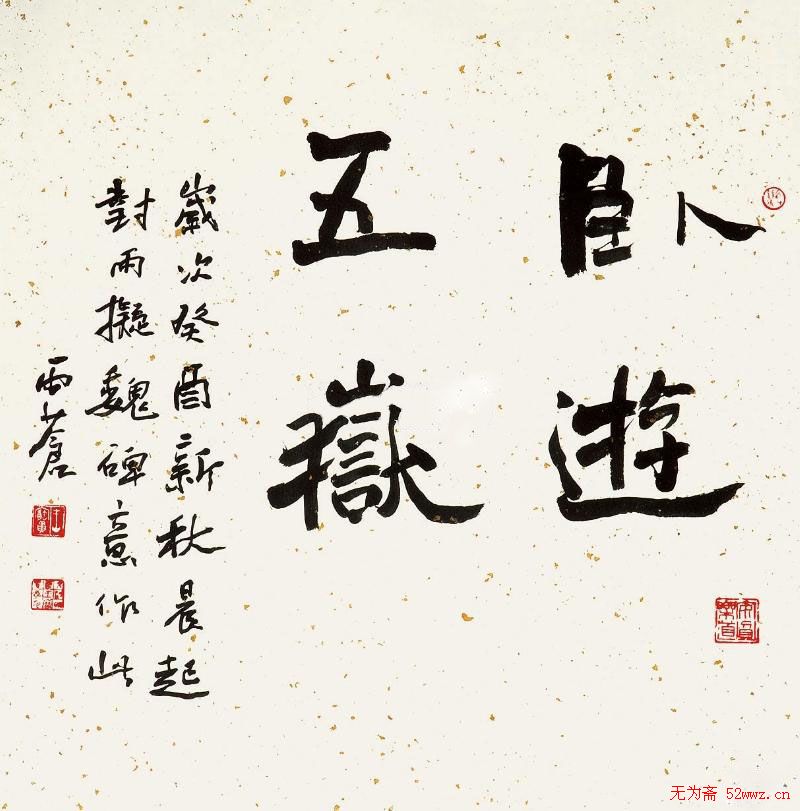 卧遊
五嶽
歲次癸酉新秋晨起
對雨擬魏碑意作此
雨蒼
无为斋 52wwz.cn